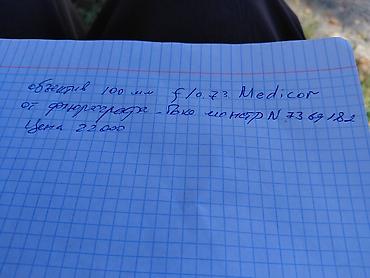 объектив 100 мм f/0.73. Medicor
от флюорографа - Боке монстр N 7369182
Цена 22000